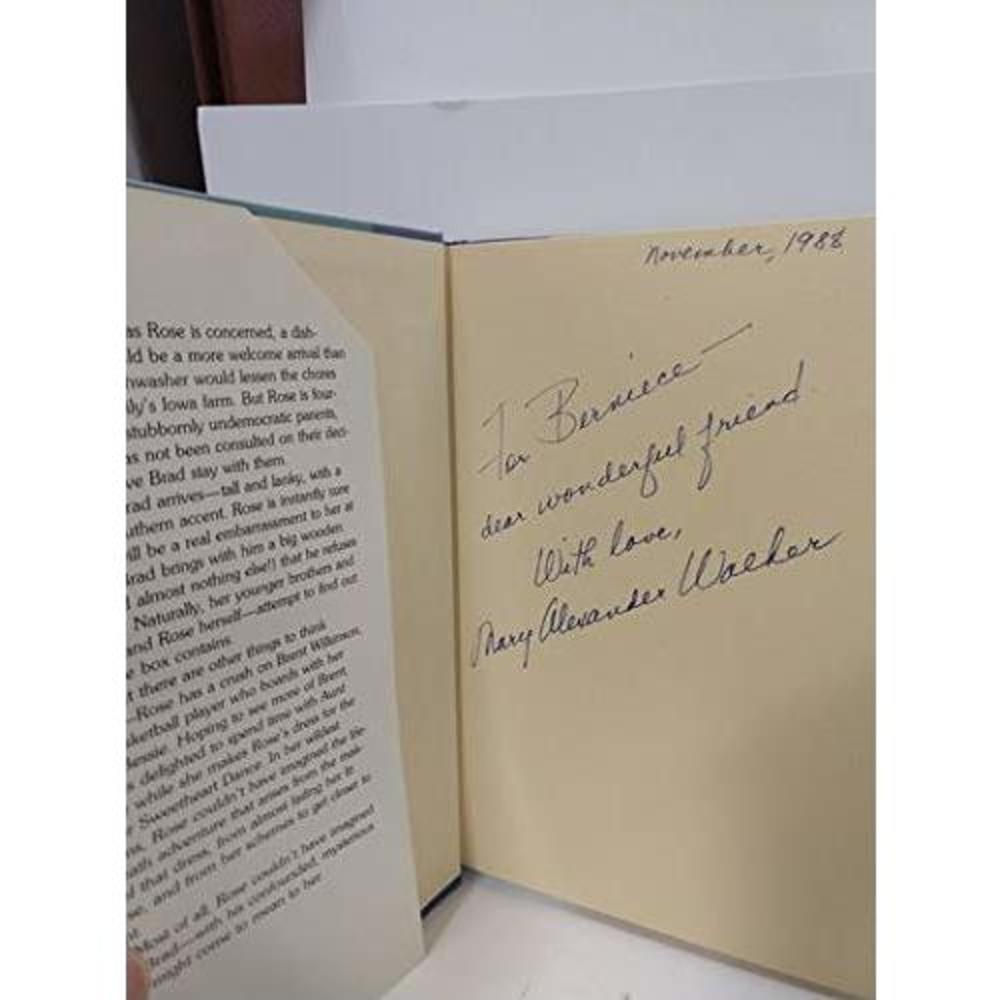 as Rose is concerned, a dish-
ld be a more welcome arrival than
hwasher would lessen the chores
ily's Iowa farm. But Rose is four-
stubbornly undemocratic parents,
as not been consulted on their deci-
ve Brad stay with them.
rad arrives—tall and lanky, with a
uthern accent. Rose is instantly sure
ill be a real embarrassment to her at
Brad brings with him a big wooden
d almost nothing else!) that he refuses
Naturally, her younger brothers and
and Rose herself—attempt to find out
e box contains.
t there are other things to think
—Rose has a crush on Brent Wilkinson,
sketball player who boards with her
Jessie. Hoping to see more of Brent,
s delighted to spend time with Aunt
while she makes Rose's dress for the
r Sweetheart Dance. In her wildest
ns, Rose couldn't have imagined the
adventure that arises from the
d that dress, from almost losing her
se, and from her schemes to get closer to
Most of all, Rose couldn't have imagined
Brad—with his confounded, mysterious
might come to mean to her
November, 1988
For Berniece—
dear wonderful friend
With love,
Mary Alexander Walker